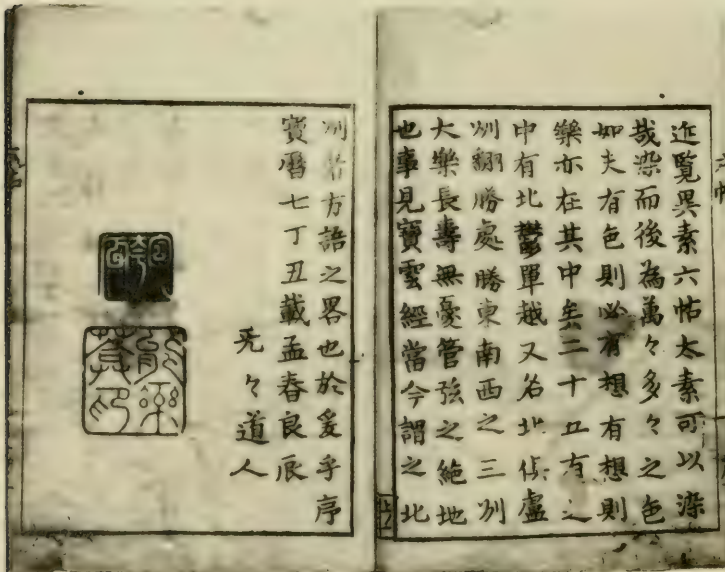 近覧異素六帖太素可以染
哉染而後為萬々多々之色
如夫有色則必有想有想則
樂亦在其中矣二十五有之
中有北鬱單越又名北俱盧
洲翻勝處勝東南西之三洲
大樂長壽無憂管弦之絶地
也事見寶雲經當今謂之北
洲者方語之畧也於爰乎序
寶暦七丁丑載孟春良辰
无々道人